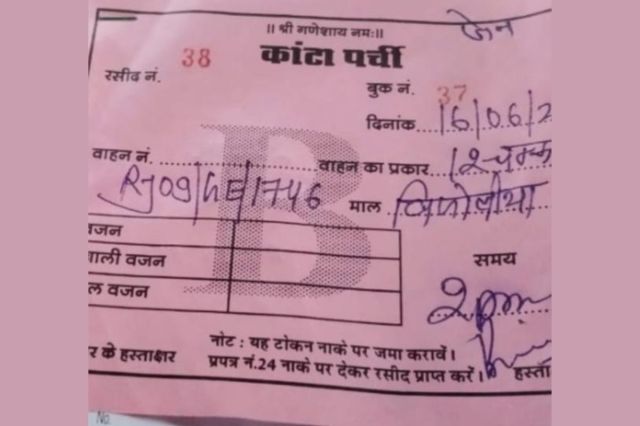 ॥ श्री गणेशाय नमः॥
कांटा पर्ची
रसीद नं. 38
बुक नं. 37
दिनांक 16/06/2
वाहन नं. RJ09/GE/1746
वाहन का प्रकार 12-चक्का
माल
वजन
ाली वजन
ल वजन
समय
2 pm
र के हस्ताक्षर
नोट : यह टोकन नाके पर जमा करावें।
प्रपत्र नं.24 नाके पर देकर रसीद प्राप्त करें।
हस्ता
No